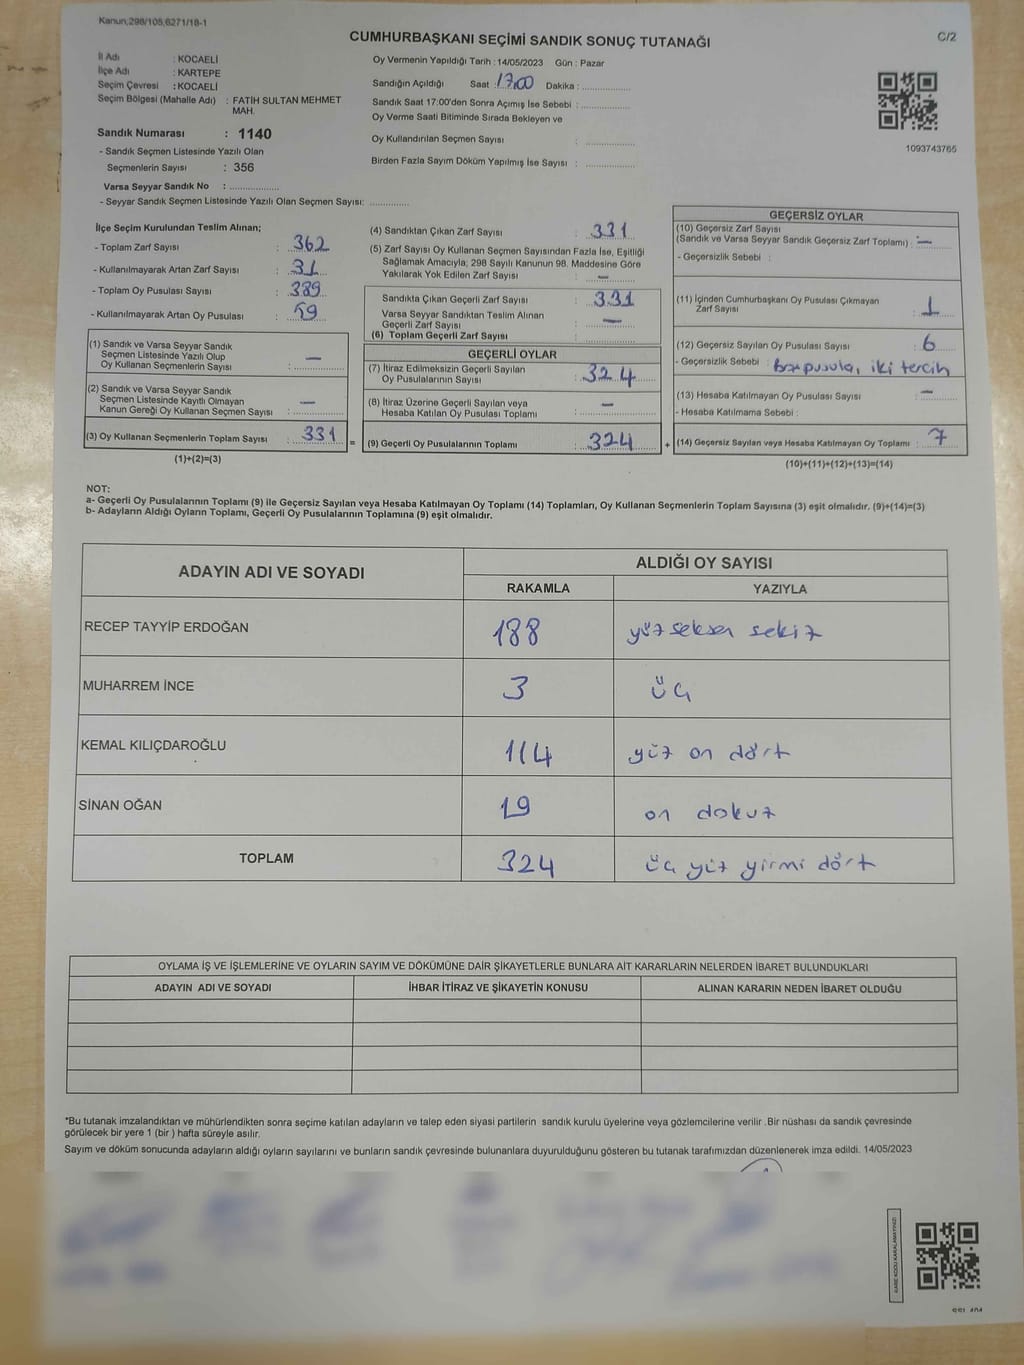 Kanun;298/105,6271/18-1
CUMHURBAŞKANI SEÇİMİ SANDIK SONUÇ TUTANAĞI
C/2
İl Adı : KOCAELİ
İlçe Adı : KARTEPE
Seçim Çevresi : KOCAELİ
Seçim Bölgesi (Mahalle Adı) : FATİH SULTAN MEHMET
MAH.
Sandık Numarası : 1140
- Sandık Seçmen Listesinde Yazılı Olan
Seçmenlerin Sayısı : 356
Varsa Seyyar Sandık No : ..............
- Seyyar Sandık Seçmen Listesinde Yazılı Olan Seçmen Sayısı: ............
Oy Vermenin Yapıldığı Tarih : 14/05/2023 Gün : Pazar
Sandığın Açıldığı Saat : 17.00 Dakika : ..............
Sandık Saat 17:00'den Sonra Açımış İse Sebebi : ..............
Oy Verme Saati Bitiminde Sırada Bekleyen ve
Oy Kullandırılan Seçmen Sayısı : ..............
Birden Fazla Sayım Döküm Yapılmış İse Sayısı : ..............
1093743765
İlçe Seçim Kurulundan Teslim Alınan;
- Toplam Zarf Sayısı : 362
- Kullanılmayarak Artan Zarf Sayısı : 31
- Toplam Oy Pusulası Sayısı : 389
- Kullanılmayarak Artan Oy Pusulası :
(1) Sandık ve Varsa Seyyar Sandık
Seçmen Listesinde Yazılı Olup
Oy Kullanan Seçmenlerin Sayısı : —
(2) Sandık ve Varsa Seyyar Sandık
Seçmen Listesinde Kayıtlı Olmayan
Kanun Gereği Oy Kullanan Seçmen Sayısı : —
(3) Oy Kullanan Seçmenlerin Toplam Sayısı : 331 =
(1)+(2)=(3)
(4) Sandıktan Çıkan Zarf Sayısı : 331
(5) Zarf Sayısı Oy Kullanan Seçmen Sayısından Fazla İse, Eşitliği
Sağlamak Amacıyla; 298 Sayılı Kanunun 98. Maddesine Göre
Yakılarak Yok Edilen Zarf Sayısı : —
Sandıkta Çıkan Geçerli Zarf Sayısı : 331
Varsa Seyyar Sandıktan Teslim Alınan
Geçerli Zarf Sayısı : —
(6) Toplam Geçerli Zarf Sayısı :
GEÇERLİ OYLAR
(7) İtiraz Edilmeksizin Geçerli Sayılan
Oy Pusulalarının Sayısı : 324
(8) İtiraz Üzerine Geçerli Sayılan veya
Hesaba Katılan Oy Pusulası Toplamı : —
(9) Geçerli Oy Pusulalarının Toplamı : 324 +
GEÇERSİZ OYLAR
(10) Geçersiz Zarf Sayısı
(Sandık ve Varsa Seyyar Sandık Geçersiz Zarf Toplamı) : —
- Geçersizlik Sebebi :
(11) İçinden Cumhurbaşkanı Oy Pusulası Çıkmayan
Zarf Sayısı : 1
(12) Geçersiz Sayılan Oy Pusulası Sayısı : 6
- Geçersizlik Sebebi : Boş pusula, iki tercih
(13) Hesaba Katılmayan Oy Pusulası Sayısı : —
- Hesaba Katılmama Sebebi :
(14) Geçersiz Sayılan veya Hesaba Katılmayan Oy Toplamı : 7
(10)+(11)+(12)+(13)=(14)
NOT:
a- Geçerli Oy Pusulalarının Toplamı (9) ile Geçersiz Sayılan veya Hesaba Katılmayan Oy Toplamı (14) Toplamları, Oy Kullanan Seçmenlerin Toplam Sayısına (3) eşit olmalıdır. (9)+(14)=(3)
b- Adayların Aldığı Oyların Toplamı, Geçerli Oy Pusulalarının Toplamına (9) eşit olmalıdır.
ADAYIN ADI VE SOYADI
ALDIĞI OY SAYISI
RAKAMLA YAZIYLA
RECEP TAYYİP ERDOĞAN 188 yüz seksen sekiz
MUHARREM İNCE 3 üç
KEMAL KILIÇDAROĞLU 114 yüz on dört
SİNAN OĞAN 19 on dokuz
TOPLAM 324 üç yüz yirmi dört
OYLAMA İŞ VE İŞLEMLERİNE VE OYLARIN SAYIM VE DÖKÜMÜNE DAİR ŞİKAYETLERLE BUNLARA AİT KARARLARIN NELERDEN İBARET BULUNDUKLARI
ADAYIN ADI VE SOYADI İHBAR İTİRAZ VE ŞİKAYETİN KONUSU ALINAN KARARIN NEDEN İBARET OLDUĞU
*Bu tutanak imzalandıktan ve mühürlendikten sonra seçime katılan adayların ve talep eden siyasi partilerin sandık kurulu üyelerine veya gözlemcilerine verilir .Bir nüshası da sandık çevresinde
görülecek bir yere 1 (bir ) hafta süreyle asılır.
Sayım ve döküm sonucunda adayların aldığı oyların sayılarını ve bunların sandık çevresinde bulunanlara duyurulduğunu gösteren bu tutanak tarafımızdan düzenlenerek imza edildi. 14/05/2023
KARE KODU KARALAMAYINIZ!